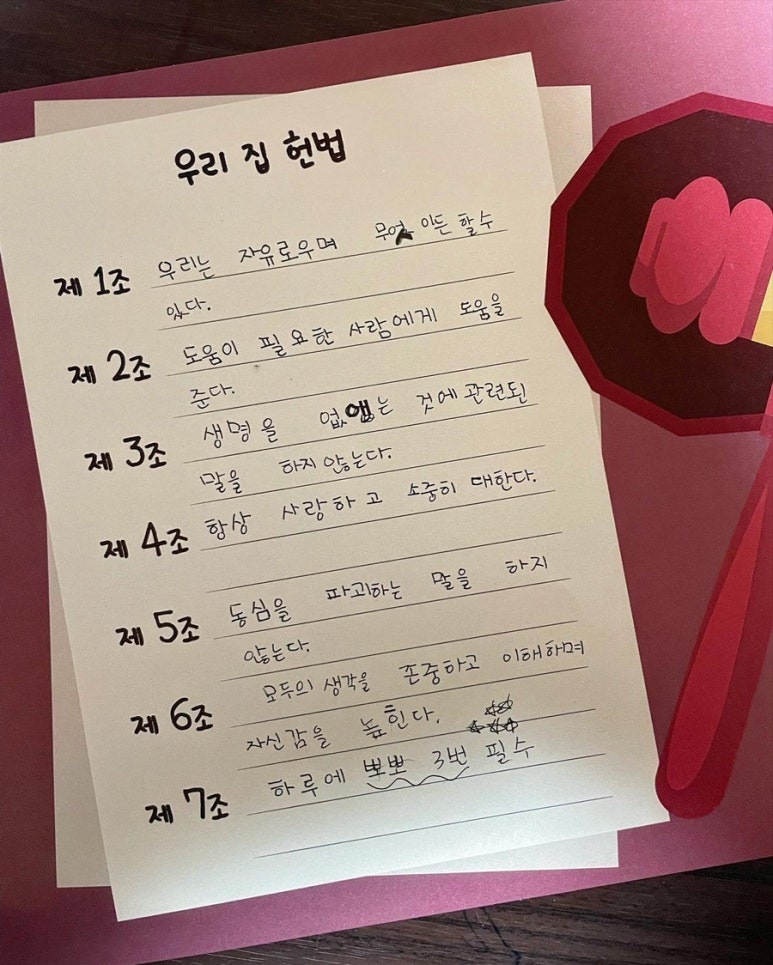 우리 집 헌법
제 1조 우리는 자유로우며 무엇이든 할수
있다.
제 2조 도움이 필요한 사람에게 도움을
준다.
제 3조 생명을 없앴는 것에 관련된
말을 하지 않는다.
제 4조 항상 사랑하고 소중히 대한다.
제 5조 동심을 파괴하는 말을 하지
않는다.
제 6조 모두의 생각을 존중하고 이해하며
자신감을 높힌다.
제 7조 하루에 뽀뽀 3번 필수